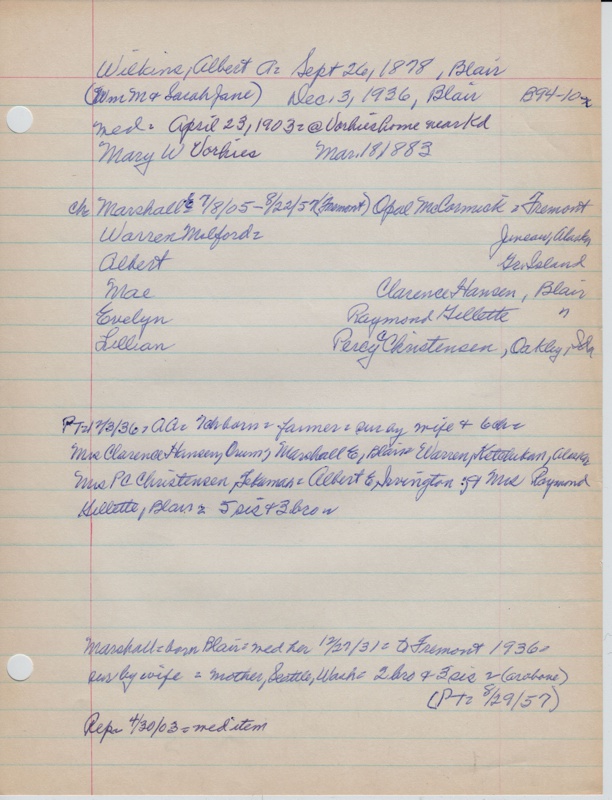 Wilkins, Albert A = Sept 26, 1878, Blair
(Wm M & Sarah Jane) Dec. 3, 1936, Blair B94-10
med = April 23, 1903 = @ Vorhies home near Kd
Mary W Vorhies Mar. 18, 1883
ch = Marshall E 7/8/05 - 8/22/57 (Fremont) Opal McCormick = Fremont
Warren Milford = Juneau, Alaska
Albert Gr. Island
Mae Clarence Hansen, Blair
Evelyn Raymond Gillette "
Lillian Percy C Christensen, Oakley,
PT = 12/3/36 = AA = born = farmer = sur by wife & 6 ch =
Mrs Clarence Hansen, Orum, Marshall E, Blair = Warren, Ketchikan, Alaska
Mrs P C Christensen, Tekamah = Albert E, Irvington & Mrs Raymond
Gillette, Blair = 5 sis & 3 bro =
Marshall = born Blair = med her 12/27/31 = to Fremont 1936 =
sur by wife = mother, Seattle, Wash = 2 bro & 3 sis = (as above)
(PT = 8/29/57)
Rep = 4/30/03 = med item